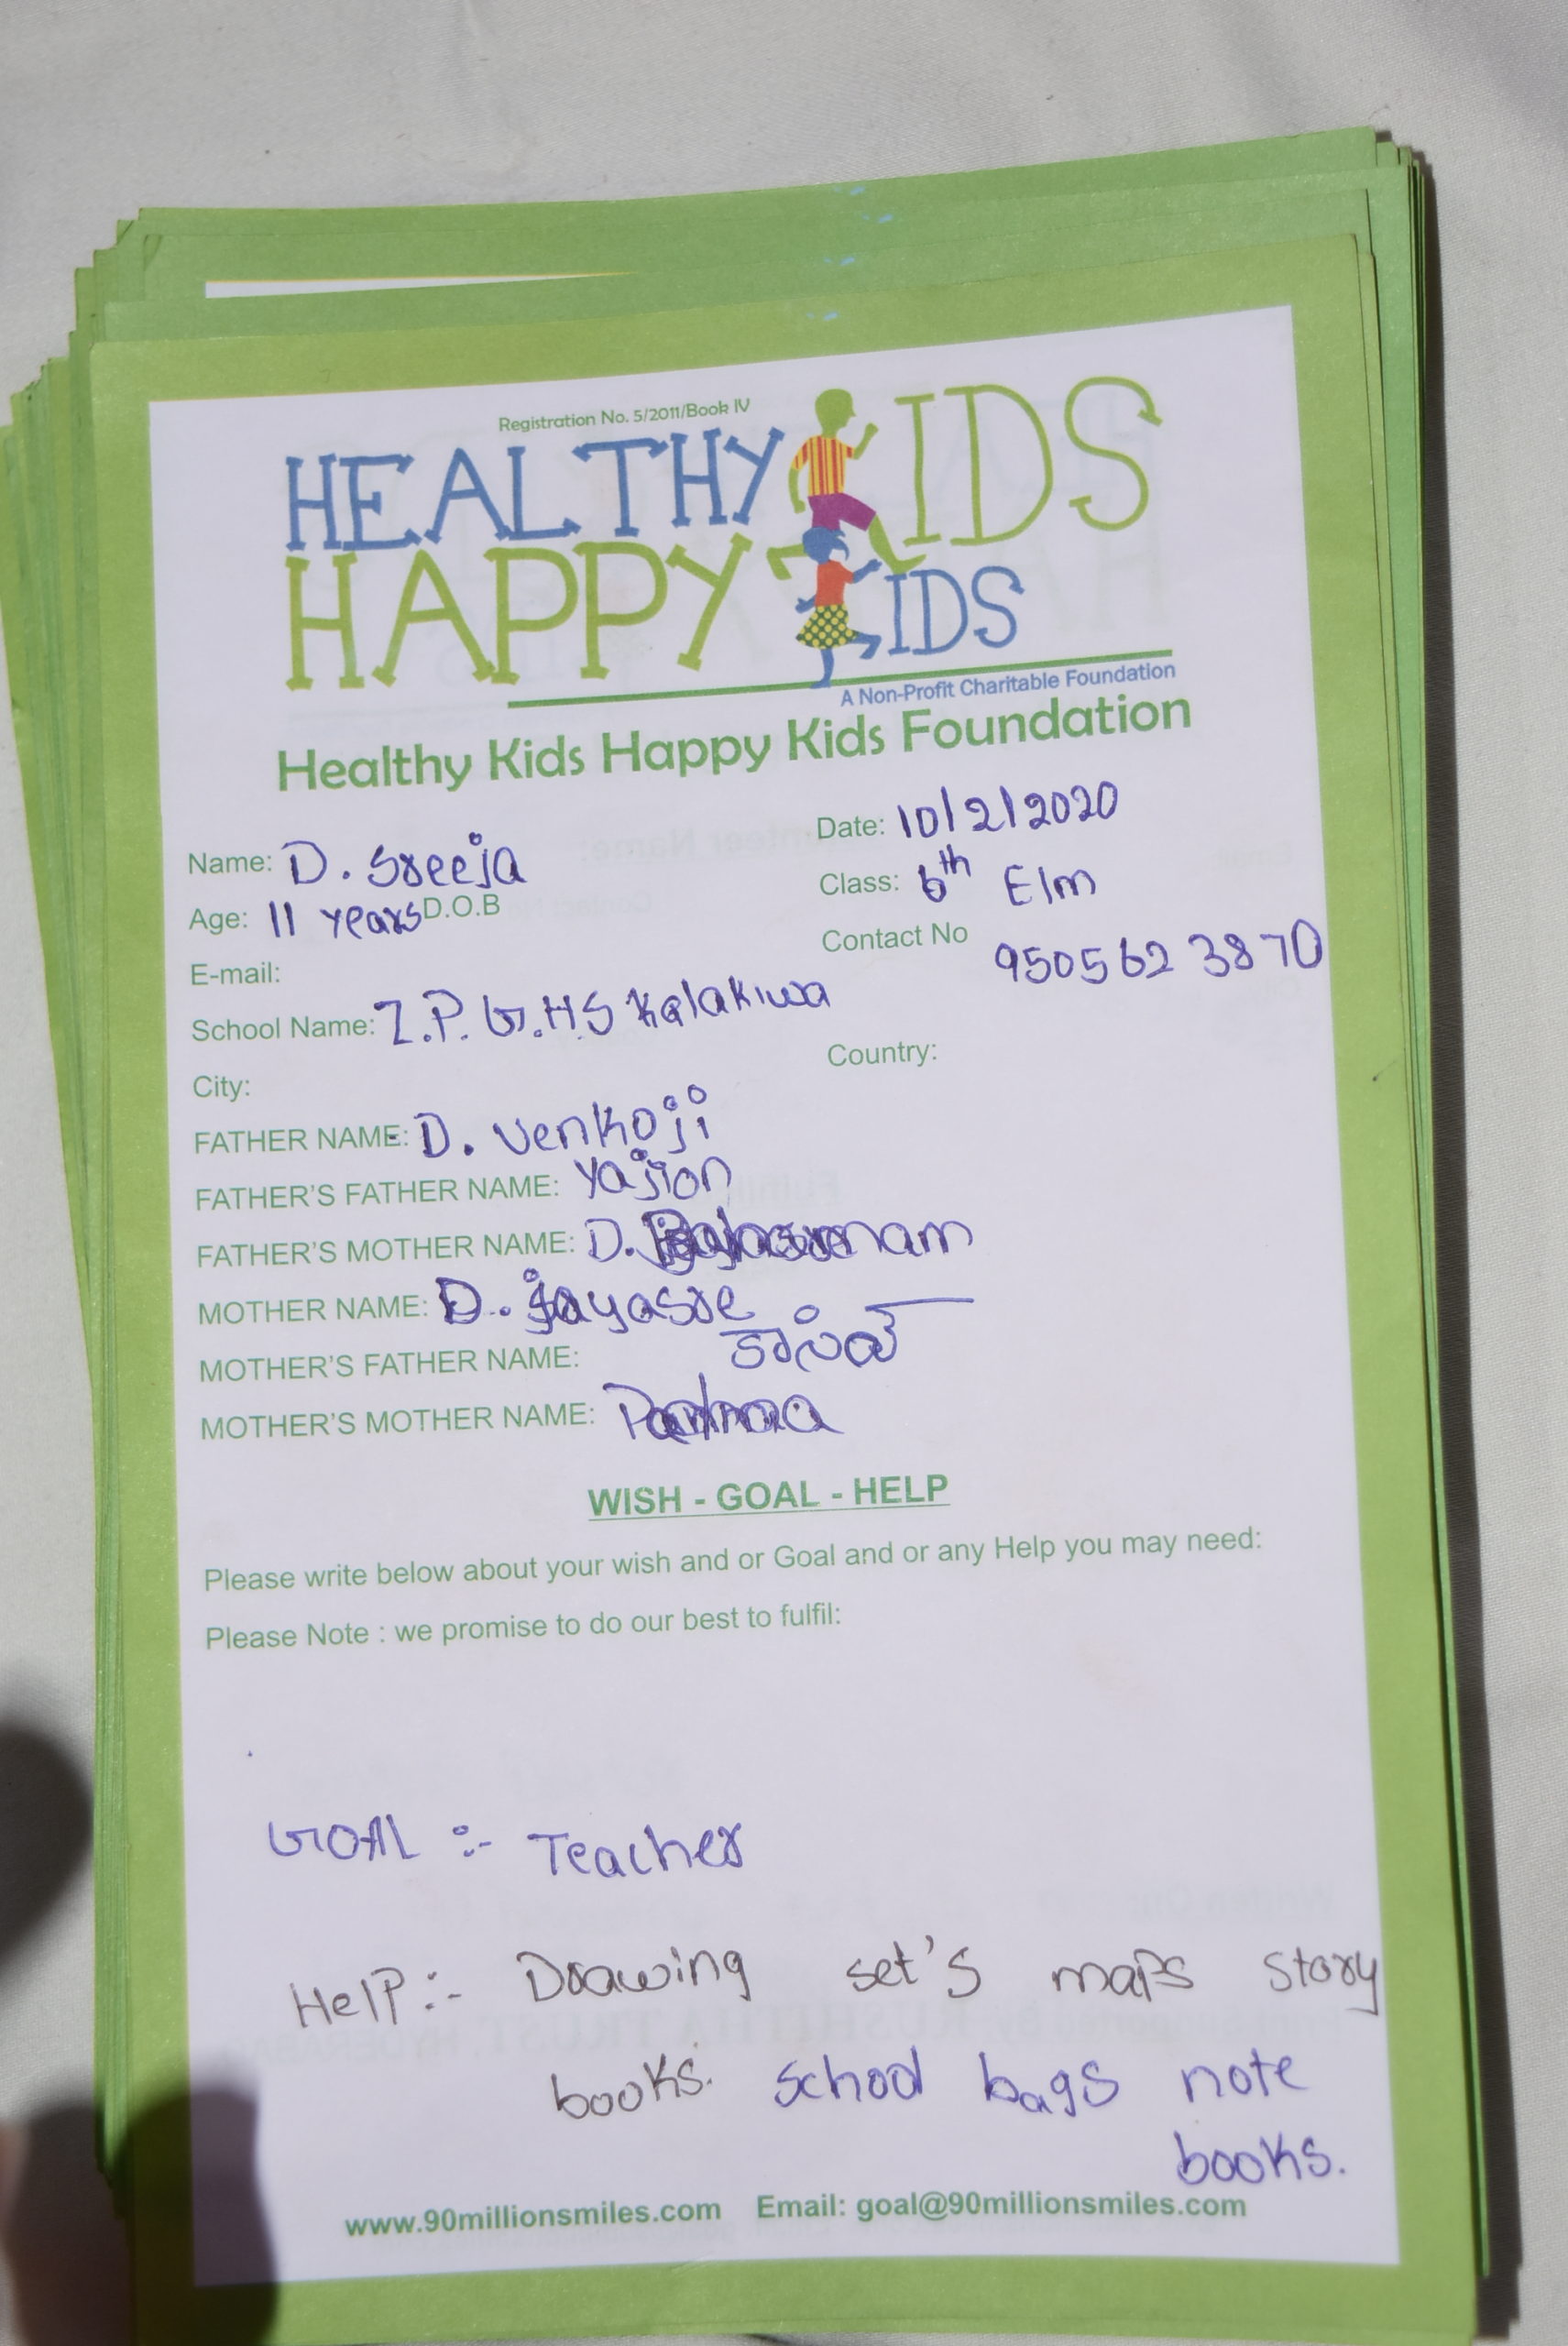 Registration No. 5/2011/Book IV
HEALTHY KIDS
HAPPY KIDS
A Non-Profit Charitable Foundation
Healthy Kids Happy Kids Foundation
Name: D. Sreeja
Date: 10/2/2020
Age: 11 years D.O.B
Class: 6th Elm
E-mail:
Contact No 9505623870
School Name: Z.P.G.H.S
City:
Country:
FATHER NAME: D. Venkoji
FATHER'S FATHER NAME:
FATHER'S MOTHER NAME: D.
MOTHER NAME: D. jayasre
MOTHER'S FATHER NAME:
MOTHER'S MOTHER NAME:
WISH - GOAL - HELP
Please write below about your wish and or Goal and or any Help you may need:
Please Note : we promise to do our best to fulfil:
GOAL :- Teacher
Help :- Drawing set's maps story
books. school bags note
books.
www.90millionsmiles.com Email: goal@90millionsmiles.com